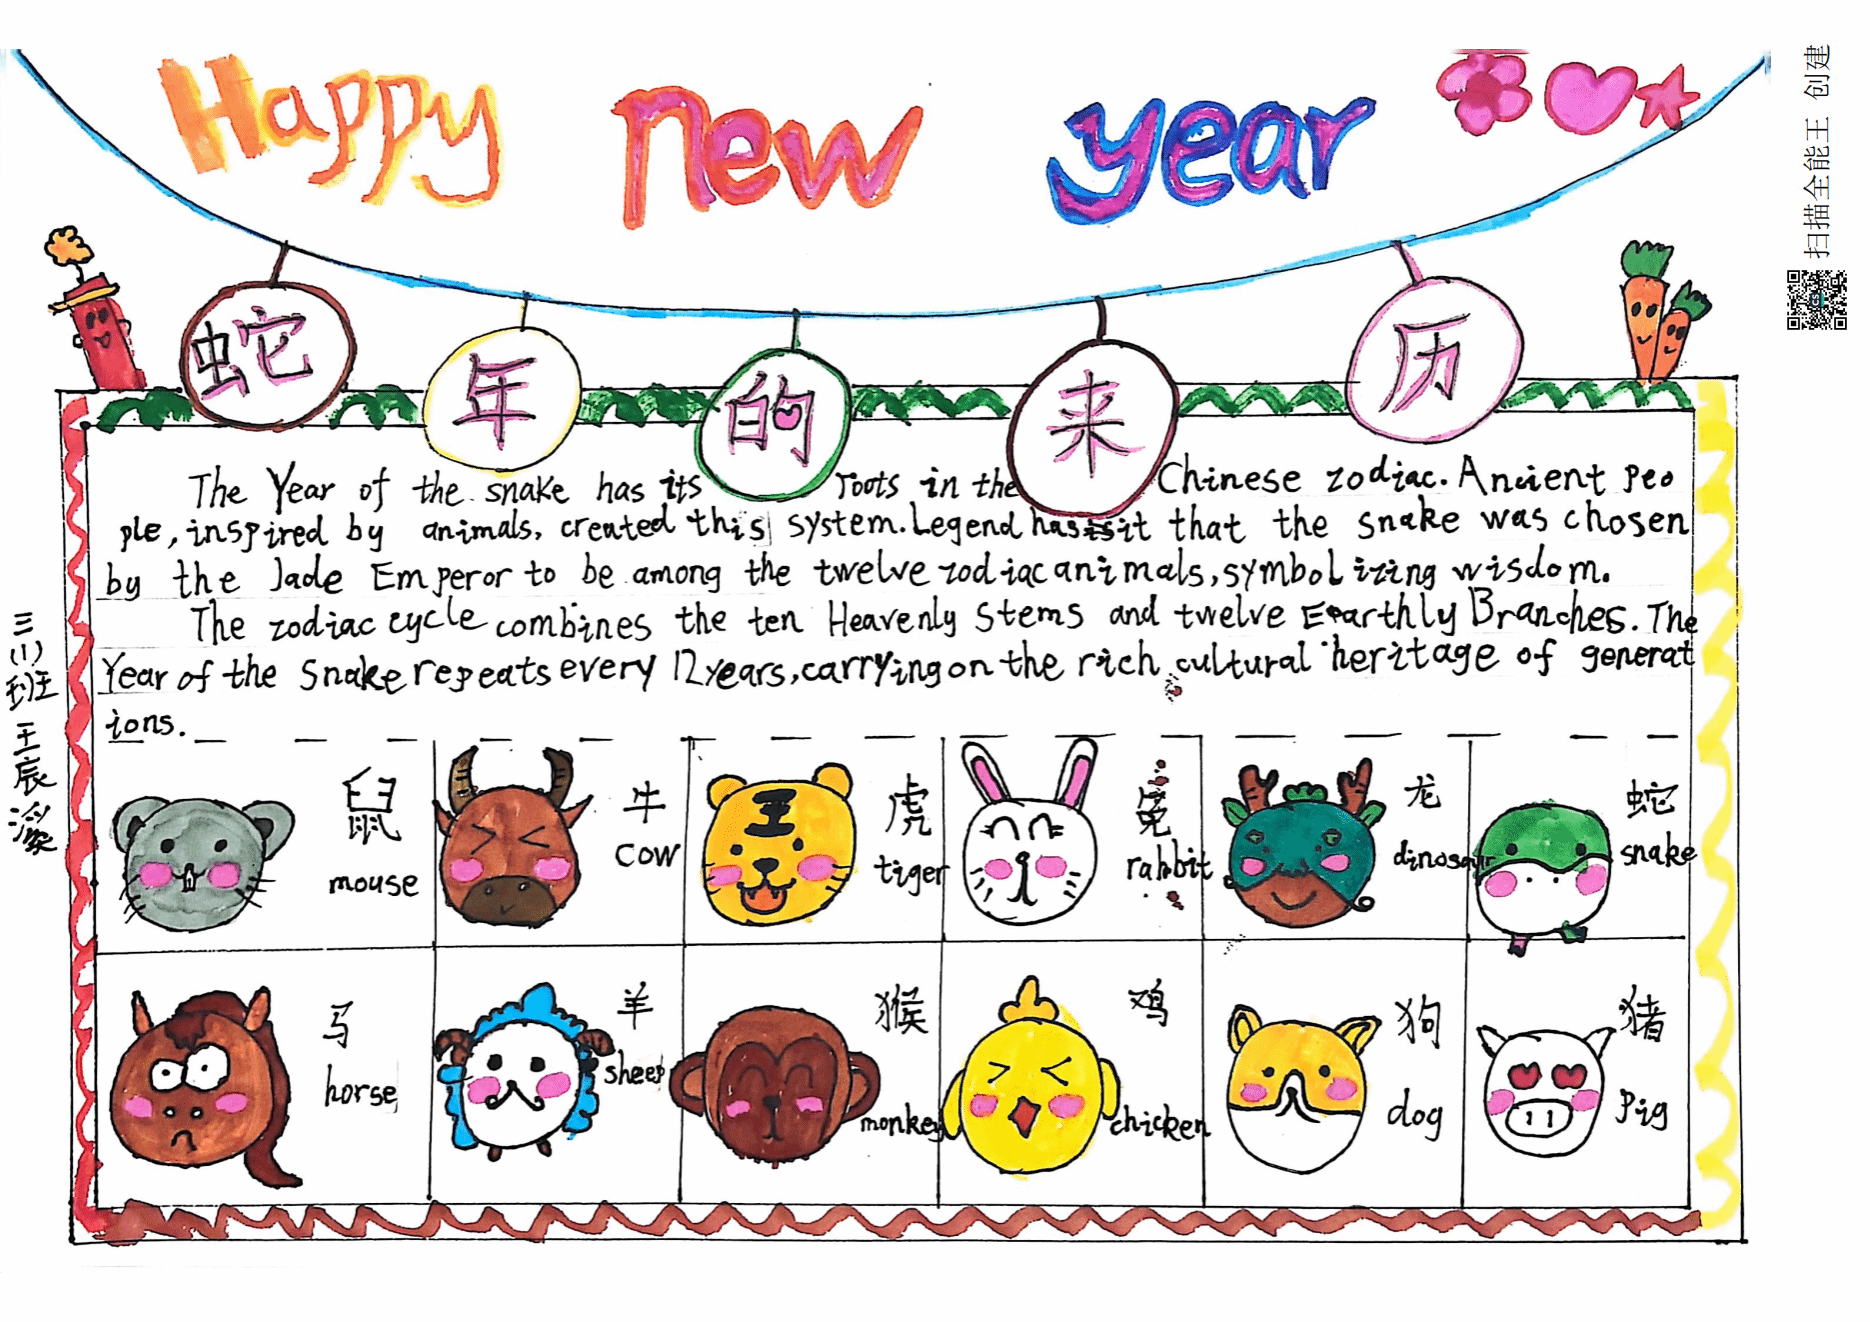 Happy new year
蛇年的来历
The Year of the snake has its roots in the Chinese zodiac. Ancient peo
ple, inspired by animals, created this system. Legend has it that the snake was chosen
by the Jade Emperor to be among the twelve zodiac animals, symbolizing wisdom.
The zodiac cycle combines the ten Heavenly Stems and twelve Earthly Branches. The
Year of the Snake repeats every 12 years, carrying on the rich cultural heritage of generat
ions.
三(1)班 王宸滢
鼠
mouse
牛
cow
虎
tiger
兔
rabbit
龙
dinosaur
蛇
snake
马
horse
羊
sheep
猴
monkey
鸡
chicken
狗
dog
猪
Pig
扫描全能王 创建
CS